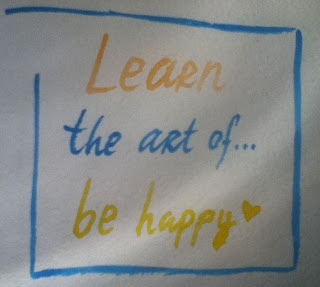 Learn
the art of...
be happy♥